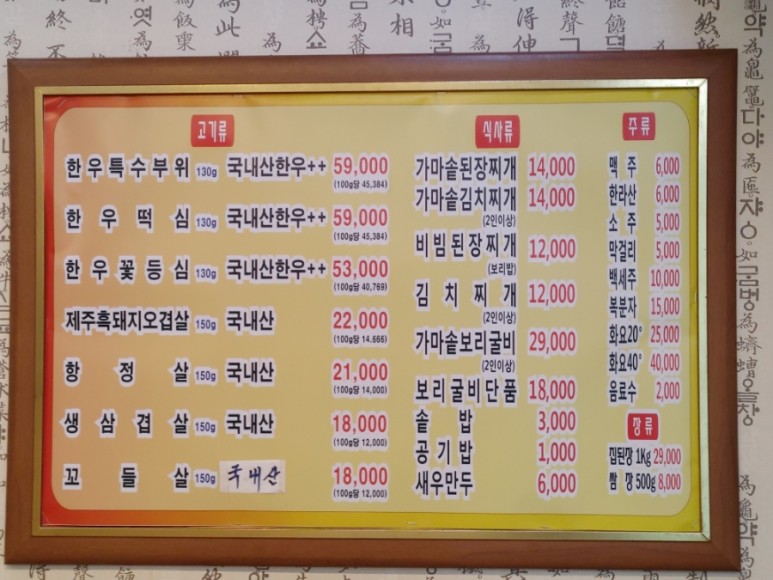 고기류
한우특수부위 130g 국내산한우++ 59,000
(100g당 45,384)
한우떡심 130g 국내산한우++ 59,000
(100g당 45,384)
한우꽃등심 130g 국내산한우++ 53,000
(100g당 40,769)
제주흑돼지오겹살 150g 국내산 22,000
(100g당 14,666)
항정살 150g 국내산 21,000
(100g당 14,000)
생삼겹살 150g 국내산 18,000
(100g당 12,000)
꼬들살 150g 국내산 18,000
(100g당 12,000)
식사류
가마솥된장찌개 14,000
가마솥김치찌개 14,000
(2인이상)
비빔된장찌개 12,000
(보리밥)
김치찌개 12,000
(2인이상)
가마솥보리굴비 29,000
(2인이상)
보리굴비단품 18,000
솥밥 3,000
공기밥 1,000
새우만두 6,000
주류
맥주 6,000
한라산 6,000
소주 5,000
막걸리 5,000
백세주 10,000
복분자 15,000
화요20° 25,000
화요40° 40,000
음료수 2,000
장류
집된장 1Kg 29,000
쌈장 500g 8,000